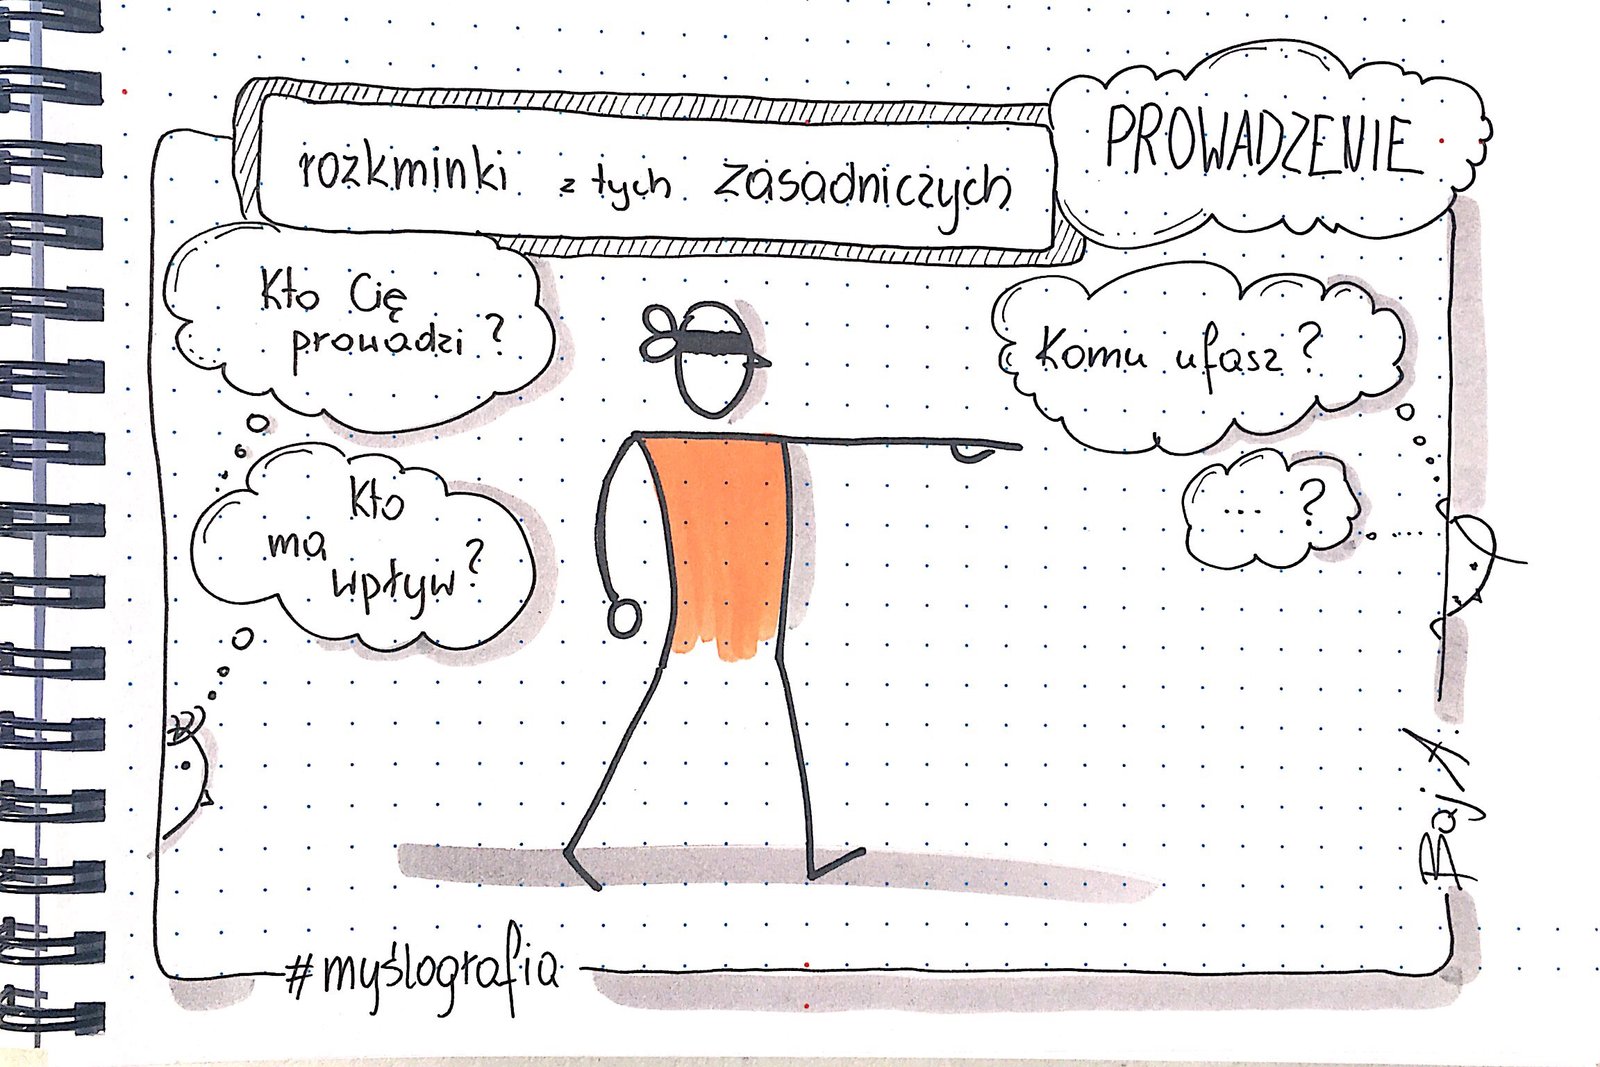 rozkminki z tych zasadniczych
PROWADZENIE
Kto Cię
prowadzi?
Komu ufasz?
Kto
ma
wpływ?
... ?
BajA
#myślografia